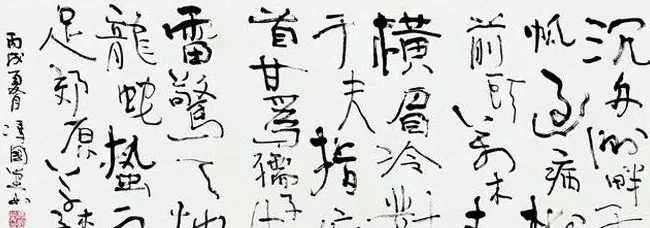 沉舟側畔千
帆過病樹
前頭萬木春
橫眉冷對
千夫指俯
首甘為孺子牛
雷驚天地
龍蛇蟄雨
足郊原草木柔
丙戌夏月馮國書